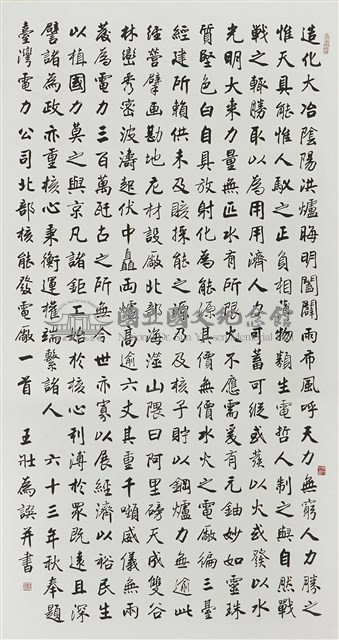 造化大冶陰陽洪爐晦明闔闢雨布風呼天力無窮人力勝之
惟天具能惟人馭之正負相 物類生電哲人制之與自然戰
戰之輒勝取以為用用濟人力可蓄可縱或 以火或發以水
光明大來力量無匹水有所限火不應需爰有元鈾妙如靈珠
質堅色白自具放射化為能源其價無價水火之電廠徧三臺
經建所賴供未及賅採能之源乃及核子貯以鋼爐力無逾此
經營擘畫勘地庀材設廠北部海澨山隈曰阿里磅天成雙谷
林巒秀密波濤起伏中矗兩爐高逾六丈其重千噸威儀無兩
茲為電力三百萬瓩古之所無今世亦寡以展經濟以裕民生
以植國力莫之與京凡諸鉅工始於核心利溥於眾既遠且深
譬諸為政亦重核心秉衡運權端繫諸人 六十三年秋奉題
臺灣電力公司北部核能發電廠一首 王壯為譔并書
國立國父紀念館
National Dr. Sun Yat-sen Memorial Hall